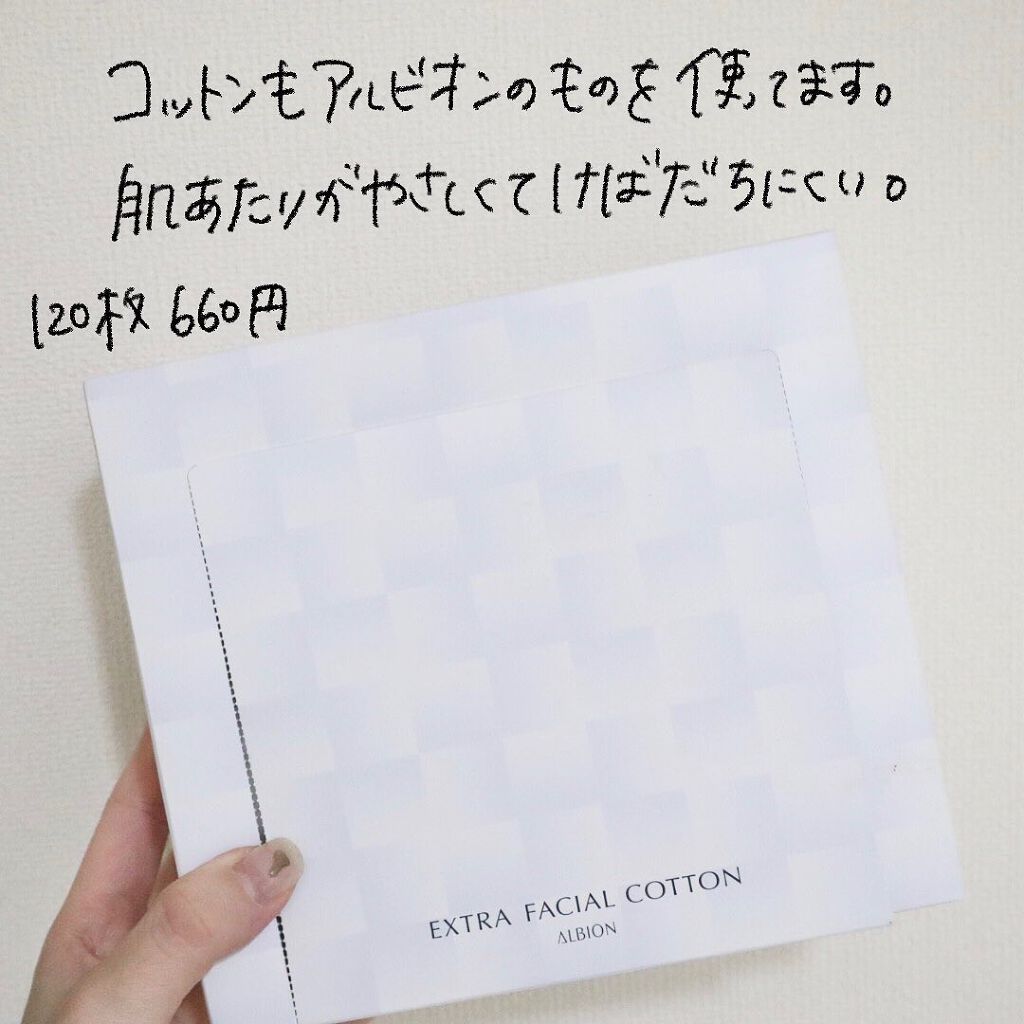 コットンもアルビオンのものを使ってます。
肌あたりがやさしくてけばだちにくい。
120枚 660円
EXTRA FACIAL COTTON
ALBION